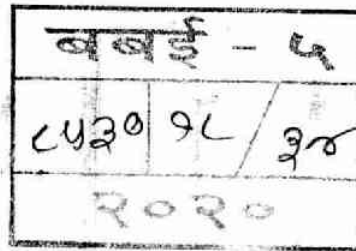 बबई - ५
८५३० १८ / ३४
२०२०